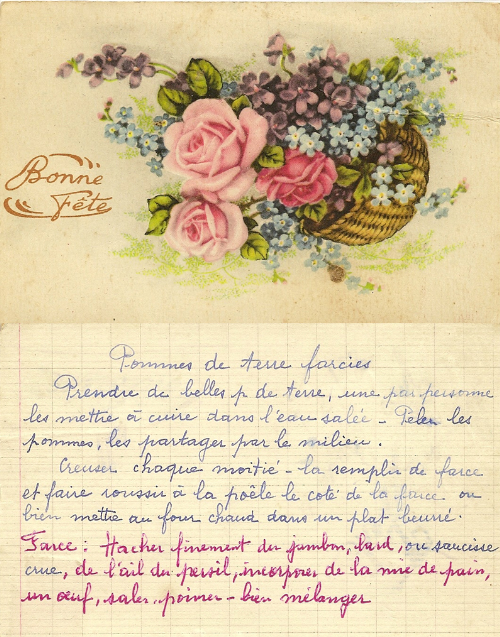 Bonne
Fête
Pommes de terre farcies
Prendre de belles p de terre, une par personne
les mettre à cuire dans l'eau salée - Peler les
pommes, les partager par le milieu.
Creuser chaque moitié - la remplir de farce
et faire roussir à la poêle le coté de la farce ou
bien mettre au four chaud dans un plat beurré.
Farce : Hacher finement du jambon, lard, ou saucisse
crue, de l'ail du persil, incorporer de la mie de pain,
un œuf, saler, poivrer - bien mélanger